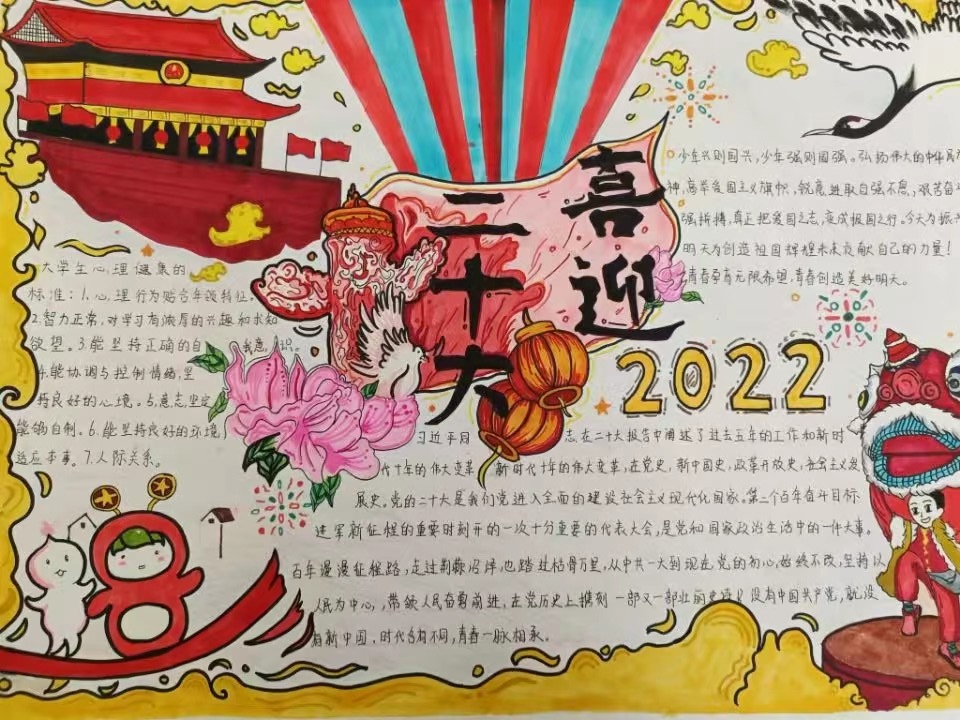 喜迎
二十大
2022
少年兴则国兴,少年强则国强。弘扬伟大的中华民族
神,高举爱国主义旗帜,锐意进取自强不息,艰苦奋斗
强拼搏,真正把爱国之志,变成报国之行。今天为振兴
明天为创造祖国辉煌未来贡献自己的力量!
青春孕育无限希望,青春创造美好明天。
大学生心理健康的
标准:1.心理行为贴合年级特征,
2.智力正常,对学习有浓厚的兴趣和求知
欲望。3.能坚持正确的自我意识。
4.能协调与控制情绪,坚
持良好的心境。5.意志坚定
能够自制。6.能坚持良好的环境
适应本事。7.人际关系。
习近平同志在二十大报告中阐述了过去五年的工作和新时
代十年的伟大变革 新时代十年的伟大变革,在党史,新中国史,改革开放史,社会主义发
展史。党的二十大是我们党进入全面的建设社会主义现代化国家。第二个百年奋斗目标
进军新征程的重要时刻开的一次十分重要的代表大会,是党和国家政治生活中的一件大事,
百年漫漫征程路,走过荆棘沼泽,也踏过枯骨万里,从中共一大到现在党的初心始终不改,坚持以
人民为中心,带领人民奋勇前进,在党历史上镌刻一部又一部壮丽史诗 没有中国共产党,就没
有新中国,时代各有不同,青春一脉相承。